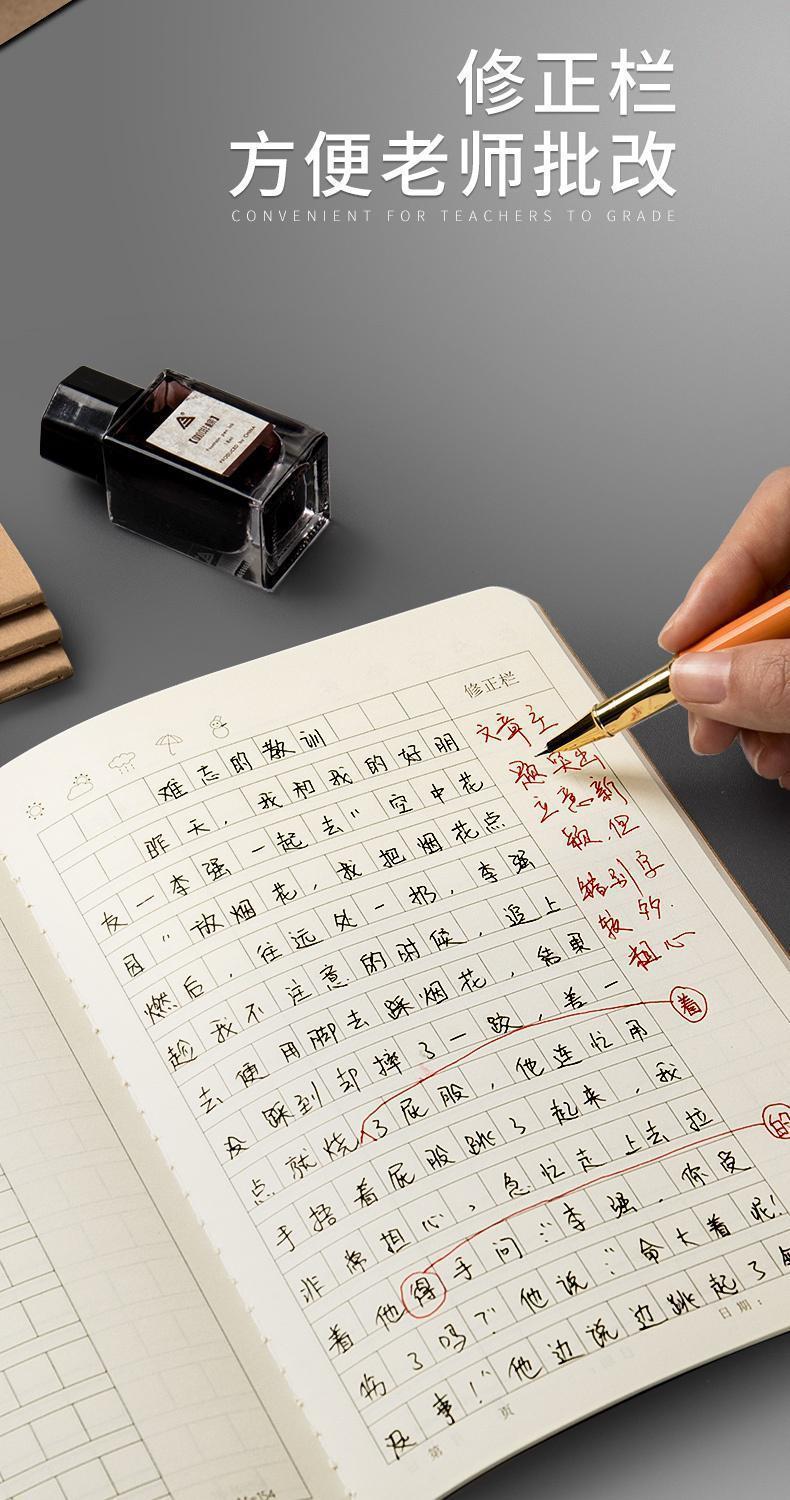 修正栏
方便老师批改
CONVENIENT FOR TEACHERS TO GRADE
fountain pen ink
PRODUCED by CHINA
修正栏
难忘的教训
昨天，我和我的好朋
友一李强一起去"空中花
园"放烟花，我把烟花点
燃后，往远处一扔，李强
趁我不注意的时候，追上
去便用脚去踩烟花，结果
没踩到却摔了一跤，差一
点就烧了屁股，他连忙用
手捂着屁股跳了起来，我
非常担心，急忙走上去拉
着他得手问："李强，你受
伤了吗？"他说："命大着呢！
没事！"他边说边跳起了
文章主
题突出
立意新
颖，但
错别字
较多.
粗心
着
的
日期：
第 页